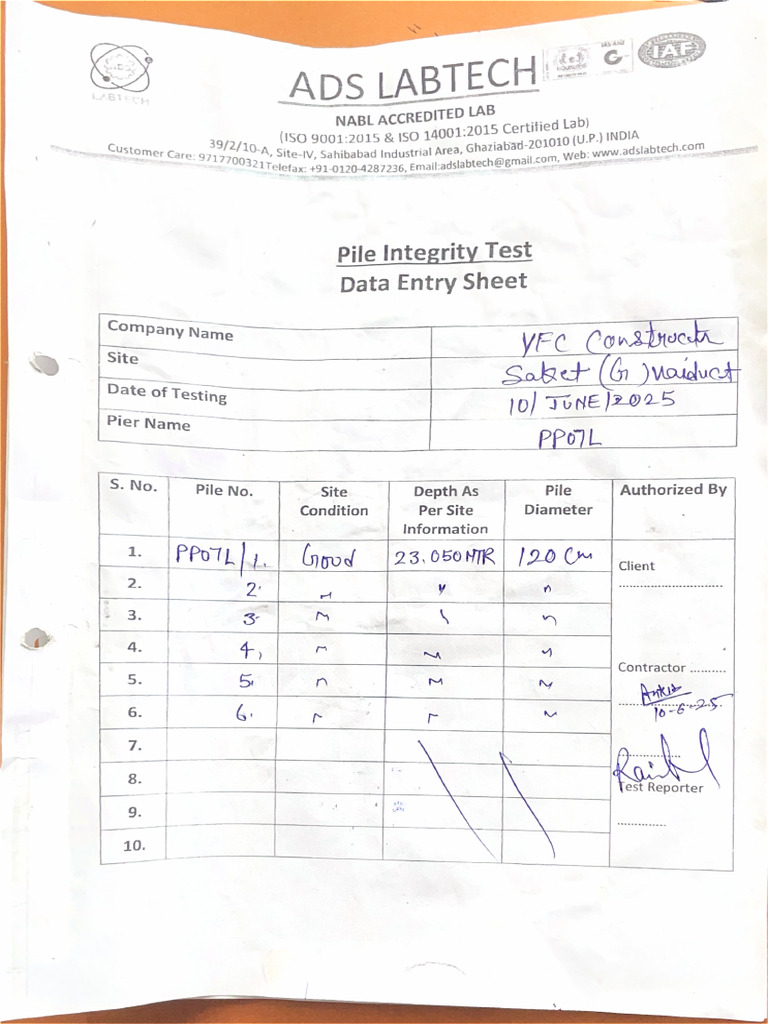 LABTECH
IAF
ADS LABTECH
NABL ACCREDITED LAB
(ISO 9001:2015 & ISO 14001:2015 Certified Lab)
39/2/10-A, Site-IV, Sahibabad Industrial Area, Ghaziabad-201010 (U.P.) INDIA
Customer Care: 9717700321Telefax: +91-0120-4287236, Email:adslabtech@gmail.com, Web: www.adslabtech.com
Pile Integrity Test
Data Entry Sheet
Company Name YFC Constructn
Site Saket (G) Naiduct
Date of Testing 10/JUNE/2025
Pier Name PP07L
S. No. Pile No. Site Condition Depth As Per Site Information Pile Diameter Authorized By
1. PP07L/1. Good 23.050MTR 120 Cm
2. 2. " " "
3. 3. " " "
4. 4. " " "
5. 5. " " "
6. 6. " " "
7.
8.
9.
10.
Client
..........................
Contractor ..........
Ankit
10-6-25
Test Reporter
.............